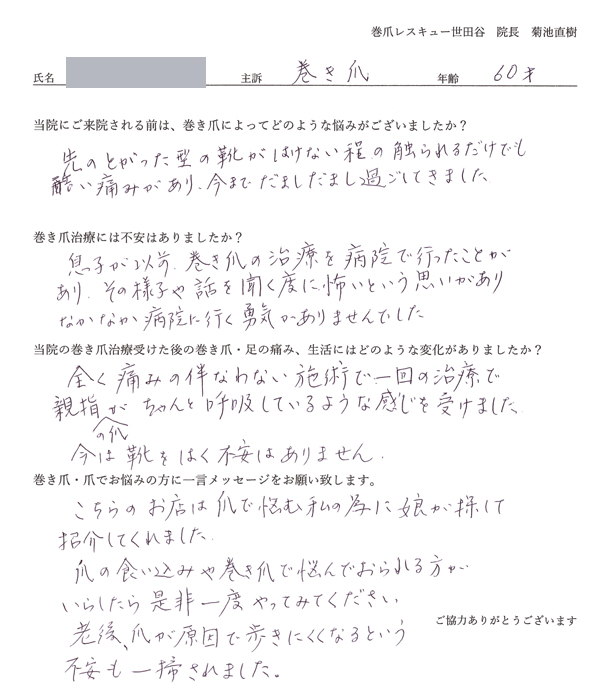 巻爪レスキュー世田谷　院長　菊池直樹
氏名　主訴　巻き爪　年齢　60才
当院にご来院される前は、巻き爪によってどのような悩みがございましたか？
先のとがった型の靴がはけない程の触られるだけでも
酷い痛みがあり、今までだましだまし過ごしてきました
巻き爪治療には不安はありましたか？
息子が以前、巻き爪の治療を病院で行ったことが
あり、その様子や話を聞く度に怖いという思いがあり
なかなか病院に行く勇気がありませんでした
当院の巻き爪治療受けた後の巻き爪・足の痛み、生活にはどのような変化がありましたか？
全く痛みの伴なわない施術で一回の治療で
親指の爪がちゃんと呼吸しているような感じを受けました
今は靴をはく不安はありません.
巻き爪・爪でお悩みの方に一言メッセージをお願い致します。
こちらのお店は爪で悩む私の為に娘が探して
紹介してくれました.
爪の食い込みや巻き爪で悩んでおられる方が
いらしたら是非一度やってみてください
ご協力ありがとうございます
老後、爪が原因で歩きにくくなるという
不安も一掃されました。